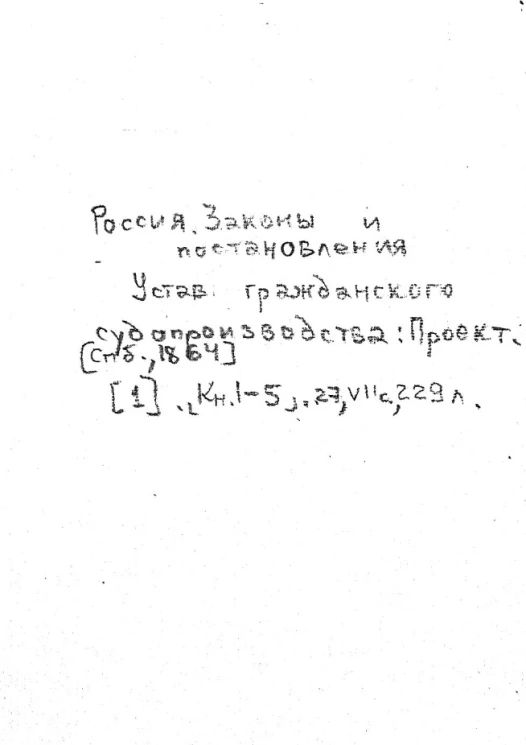 Россия. Законы и
постановления
Устав гражданского
судопроизводства: Проект.
[Спб., 1864]
[1]. „Кн. 1-5„. 27, VII с, 229 л.